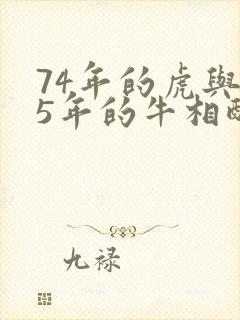 74年的虎與
5年的牛相
九禄